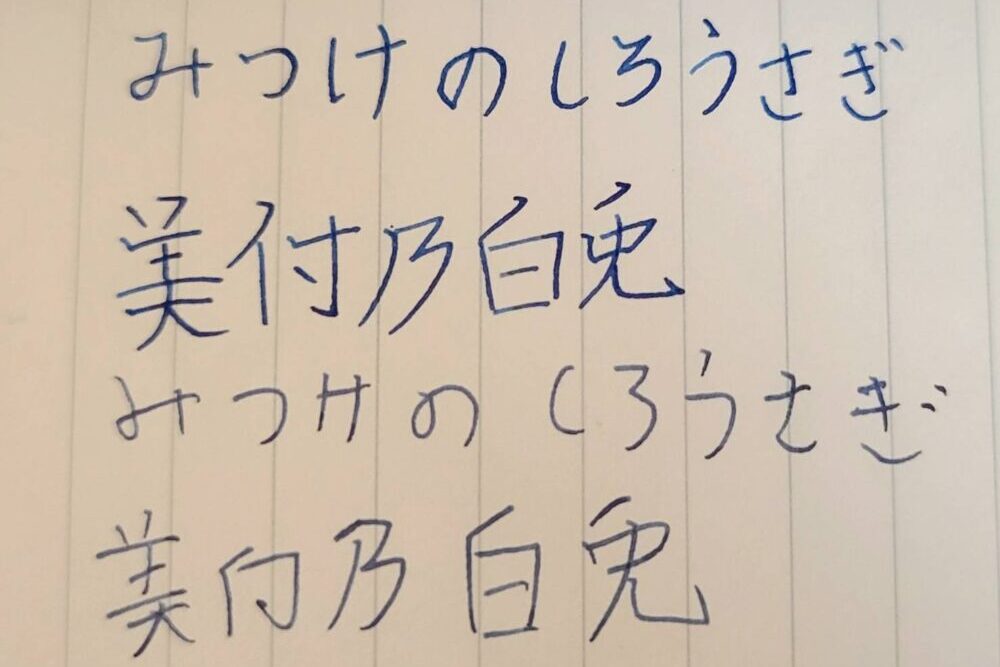 みつけのしろうさぎ
美付乃白兎
みつけのしろうさぎ
美付乃白兎